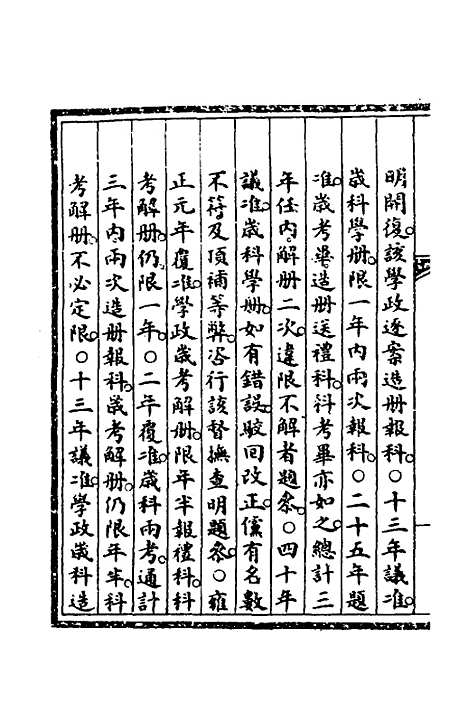 明開復。該學政逐案造册報科。○十三年議准。
歲科學册。限一年内兩次報科。○二十五年題
准。歲考畢。造册送禮科。科考畢亦如之。總計三
年任内。解册二次。違限不解者題叅。○四十年
議准。歲科學册。如有錯誤。駮回改正。儻有名數
不符及頂補等弊。咨行該督撫查明題叅。○雍
正元年覆准。學政歲考解册。限年半報禮科。科
考解册。仍限一年。○二年覆准。歲科兩考。通計
三年内兩次造册報科。歲考解册。仍限年半。科
考解册。不必定限。○十三年議准。學政歲科造